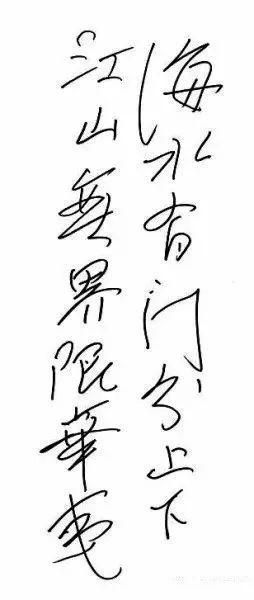 海水有门分上下
江山無界限華夷